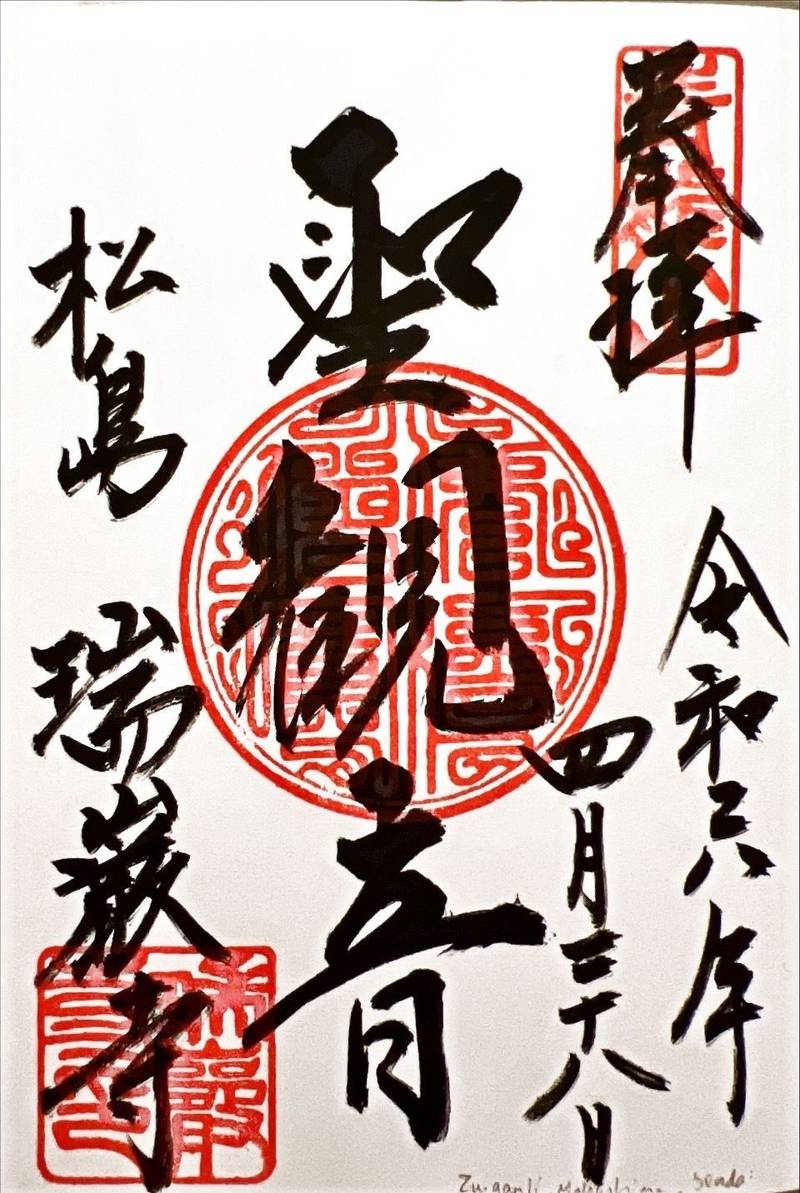 奉拝
令和六年
四月二十八日
聖観音
松島 瑞巌寺
Zuiganji Matsushima, Sendai